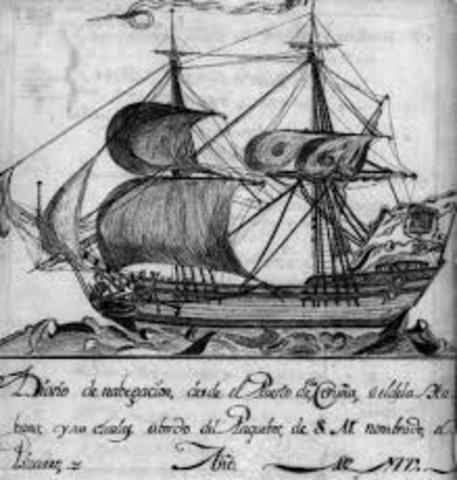 Diario de nabegacion, desde el Puerto de la Coruña, a el dela Ha
bana, y sus escalas abordo del Paquebot de S. M. nombrado el
Año de